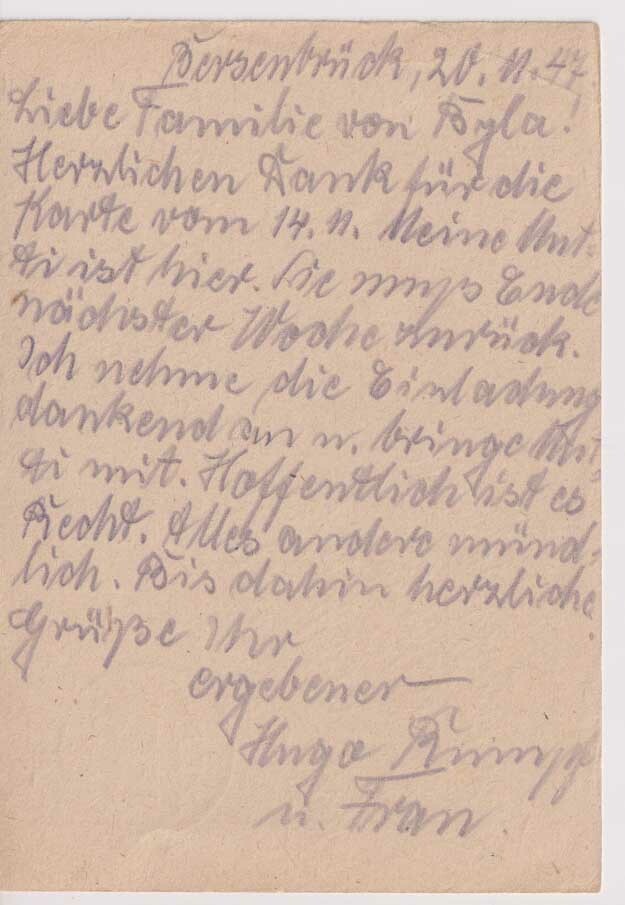 Bersenbrück, 20.11.47.
Liebe Familie von Byla!
Herzlichen Dank für die
Karte vom 14.11. Meine Mut-
ti ist hier. Sie muss Ende
nächster Woche zurück.
Ich nehme die Einladung
dankend an u. bringe Mut-
ti mit. Hoffentlich ist es
Recht. Alles andere münd-
lich. Bis dahin herzliche
Grüße Ihr
ergebener
Hugo
u. Frau